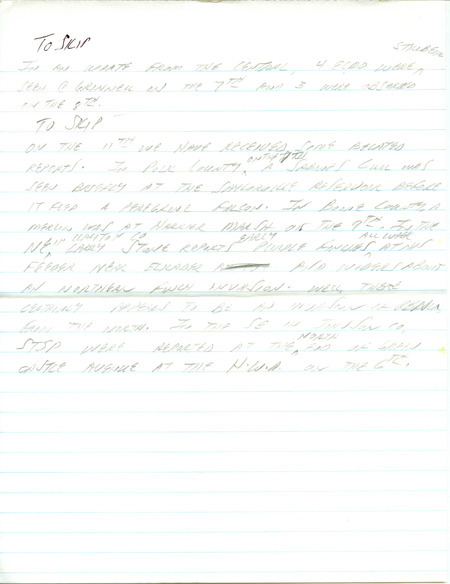 TO SKIP
IN AN UPDATE FROM THE CENTRAL, 4 WERE
SEEN @ GRINNELL ON THE 7TH AND 3 WERE OBSERVED
ON THE 8TH.
TO SKIP
ON THE 11TH WE HAVE RECEIVED SOME BELATED
REPORTS. IN POLK COUNTY, ON THE 7TH A SABINE'S GULL WAS
SEEN BRIEFLY AT THE SAYLORVILLE RESERVOIR BEFORE
IT FLED A PEREGRINE FALCON. IN BOONE COUNTY A
MERLIN WAS AT HARRIER MARSH ON THE 9TH. IN THE
NE, LARRY STONE REPORTS EARLY PURPLE FINCHES AT HIS
FEEDER NEAR ELKADER AND WONDERS ABOUT
AN NORTHERN FINCH INVASION. WELL, THERE
CERTAINLY APPEARS TO BE AN INVASION OF
FROM THE NORTH. IN THE SE IN CO.
STSP WERE REPORTED AT THE NORTH END OF GREEN
CASTLE AVENUE AT THE H.W.A. ON THE 6TH.